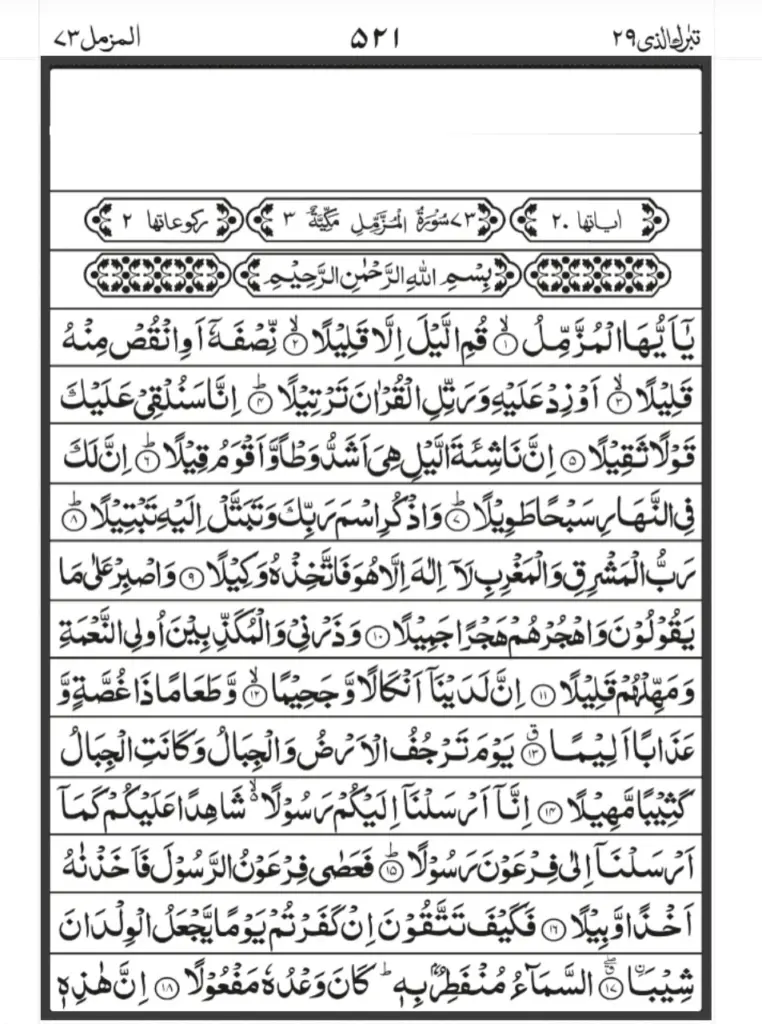 تبٰرك الذی ۲۹ ۵۲۱ المزمل ۷۳
اٰیاتها ۲۰ ۷۳ سُوْرَةُ الْمُزَّمِّلِ مَكِّیَّةٌ ۳ ركوعاتها ۲
بِسْمِ اللهِ الرَّحْمٰنِ الرَّحِیْمِ
یٰۤاَیُّهَا الْمُزَّمِّلُ ۙ﴿۱﴾ قُمِ الَّیْلَ اِلَّا قَلِیْلًا ۙ﴿۲﴾ نِّصْفَهٗۤ اَوِ انْقُصْ مِنْهُ
قَلِیْلًا ۙ﴿۳﴾ اَوْ زِدْ عَلَیْهِ وَ رَتِّلِ الْقُرْاٰنَ تَرْتِیْلًا ؕ﴿۴﴾ اِنَّا سَنُلْقِیْ عَلَیْكَ
قَوْلًا ثَقِیْلًا ﴿۵﴾ اِنَّ نَاشِئَةَ الَّیْلِ هِیَ اَشَدُّ وَطْاً وَّ اَقْوَمُ قِیْلًا ؕ﴿۶﴾ اِنَّ لَكَ
فِی النَّهَارِ سَبْحًا طَوِیْلًا ؕ﴿۷﴾ وَ اذْكُرِ اسْمَ رَبِّكَ وَ تَبَتَّلْ اِلَیْهِ تَبْتِیْلًا ؕ﴿۸﴾
رَبُّ الْمَشْرِقِ وَ الْمَغْرِبِ لَاۤ اِلٰهَ اِلَّا هُوَ فَاتَّخِذْهُ وَكِیْلًا ﴿۹﴾ وَ اصْبِرْ عَلٰی مَا
یَقُوْلُوْنَ وَ اهْجُرْهُمْ هَجْرًا جَمِیْلًا ﴿۱۰﴾ وَ ذَرْنِیْ وَ الْمُكَذِّبِیْنَ اُولِی النَّعْمَةِ
وَ مَهِّلْهُمْ قَلِیْلًا ﴿۱۱﴾ اِنَّ لَدَیْنَاۤ اَنْكَالًا وَّ جَحِیْمًا ۙ﴿۱۲﴾ وَّ طَعَامًا ذَا غُصَّةٍ وَّ
عَذَابًا اَلِیْمًا ۗ﴿۱۳﴾ یَوْمَ تَرْجُفُ الْاَرْضُ وَ الْجِبَالُ وَ كَانَتِ الْجِبَالُ
كَثِیْبًا مَّهِیْلًا ﴿۱۴﴾ اِنَّاۤ اَرْسَلْنَاۤ اِلَیْكُمْ رَسُوْلًا ۙ۬ شَاهِدًا عَلَیْكُمْ كَمَاۤ
اَرْسَلْنَاۤ اِلٰی فِرْعَوْنَ رَسُوْلًا ؕ﴿۱۵﴾ فَعَصٰی فِرْعَوْنُ الرَّسُوْلَ فَاَخَذْنٰهُ
اَخْذًا وَّبِیْلًا ﴿۱۶﴾ فَكَیْفَ تَتَّقُوْنَ اِنْ كَفَرْتُمْ یَوْمًا یَّجْعَلُ الْوِلْدَانَ
شِیْبَا ۗۖ﴿۱۷﴾ السَّمَآءُ مُنْفَطِرٌۢ بِهٖ ؕ كَانَ وَعْدُهٗ مَفْعُوْلًا ﴿۱۸﴾ اِنَّ هٰذِهٖ